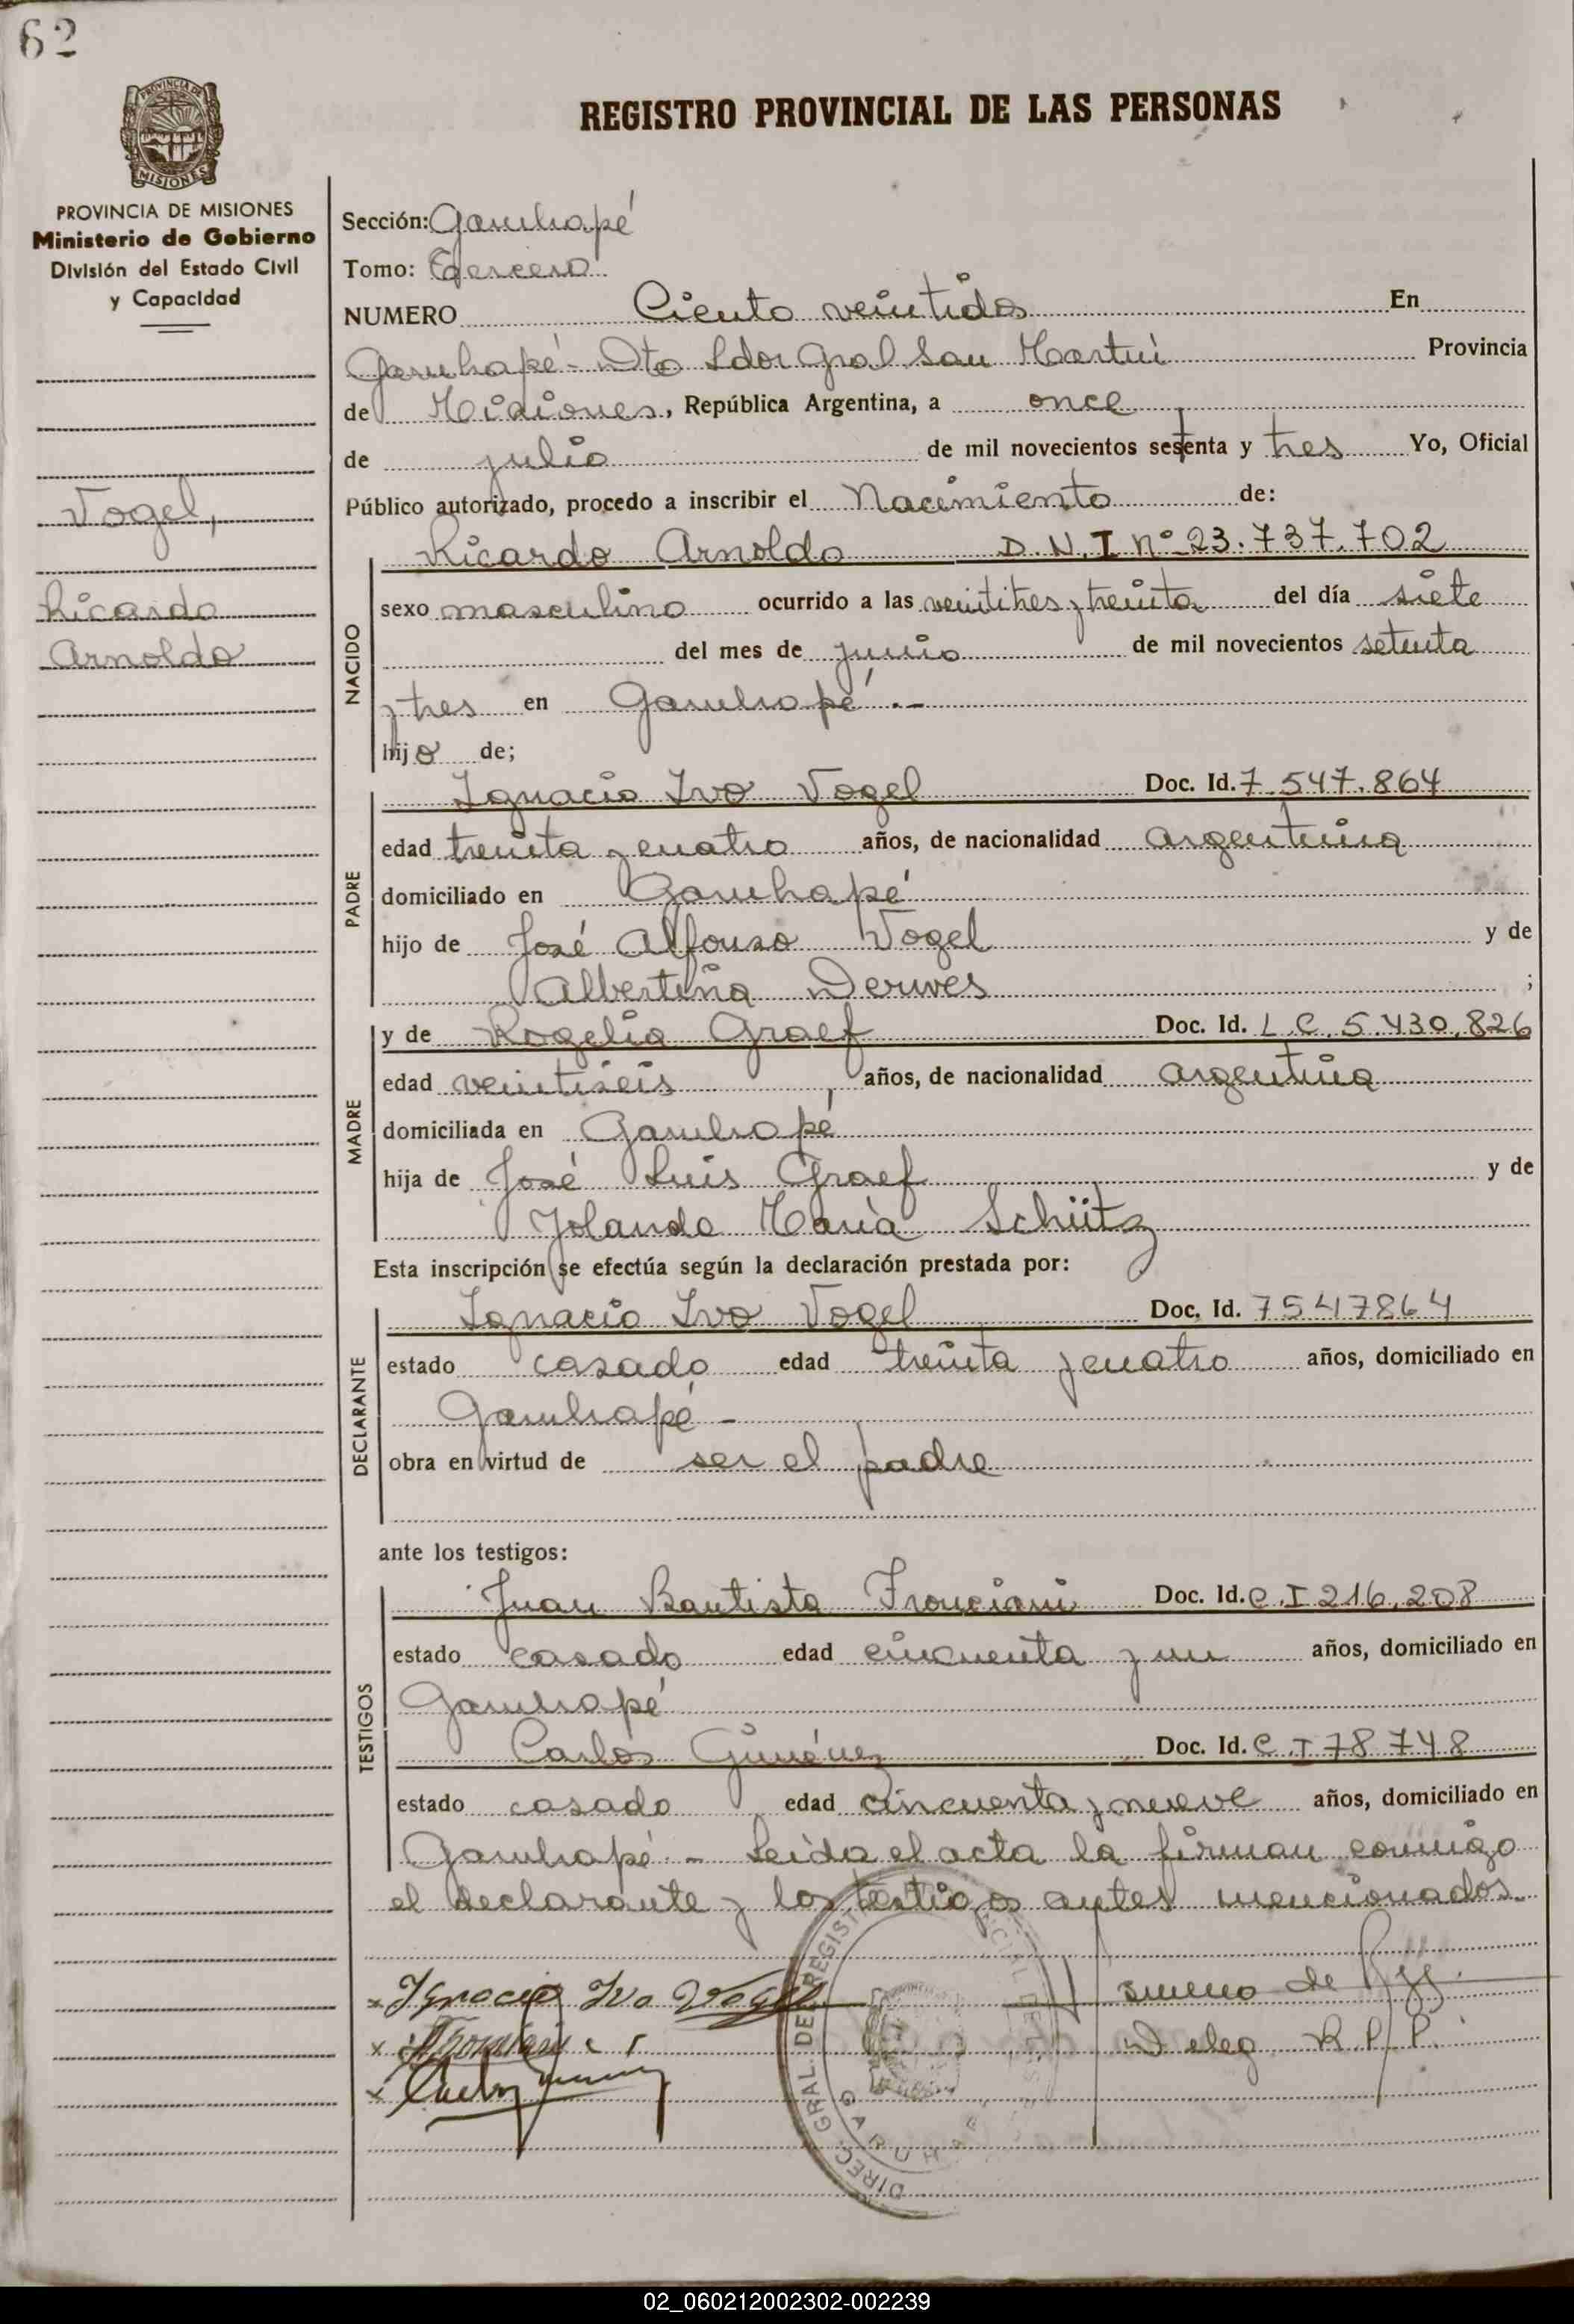 62
REGISTRO PROVINCIAL DE LAS PERSONAS
PROVINCIA DE MISIONES
PROVINCIA DE MISIONES
Ministerio de Gobierno
División del Estado Civil
y Capacidad
Vogel,
Ricardo
Arnoldo
Sección: Garuhapé
Tomo: Tercero
NUMERO Ciento veintidos En
Garuhapé - Dto Ldor Gral San Martin Provincia
de Misiones, República Argentina, a once
de julio de mil novecientos setenta y tres Yo, Oficial
Público autorizado, procedo a inscribir el Nacimiento de:
NACIDO
Ricardo Arnoldo D.N.I nº 23.737.702
sexo masculino ocurrido a las veintitres y treinta del día siete
del mes de junio de mil novecientos setenta
y tres en Garuhapé.-
hijo de;
PADRE
Ignacio Ivo Vogel Doc. Id. 7.547.864
edad treinta y cuatro años, de nacionalidad argentina
domiciliado en Garuhapé
hijo de José Alfonso Vogel y de
Albertina ;
MADRE
y de Rogelia Graef Doc. Id. L.C. 5.430.826
edad veintiseis, años, de nacionalidad argentina
domiciliada en Garuhapé
hija de José Luis Graef y de
Jolanda María Schütz
Esta inscripción se efectúa según la declaración prestada por:
DECLARANTE
Ignacio Ivo Vogel Doc. Id. 7547864
estado casado edad treinta y cuatro años, domiciliado en
Garuhapé -
obra en virtud de ser el padre
ante los testigos:
TESTIGOS
Juan Bautista Doc. Id. C.I 216.208
estado casado edad cincuenta y un años, domiciliado en
Garuhapé
Carlos Giménez Doc. Id. C.I 78748
estado casado edad cincuenta y nueve años, domiciliado en
Garuhapé - Leida el acta la firman conmigo
el declarante y los testigos antes mencionados.
x Ignacio Ivo Vogel
x
x
de
Deleg R.P.P.
DIREC. GRAL. DEL REGIST
GARUHAPE
02_060212002302-002239